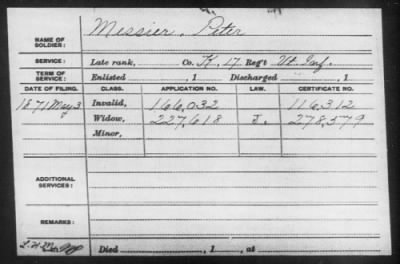 NAME OF SOLDIER: Messier, Peter
SERVICE: Late rank, Co. K, 17 Reg't Vt. Inf.
TERM OF SERVICE: Enlisted , 1 Discharged , 1
DATE OF FILING. CLASS. APPLICATION NO. LAW. CERTIFICATE NO.
1871 May 3 Invalid, 166,032 116,312
Widow, 227,618 J. 278,579
Minor,
ADDITIONAL SERVICES:
REMARKS:
Died , 1 , at